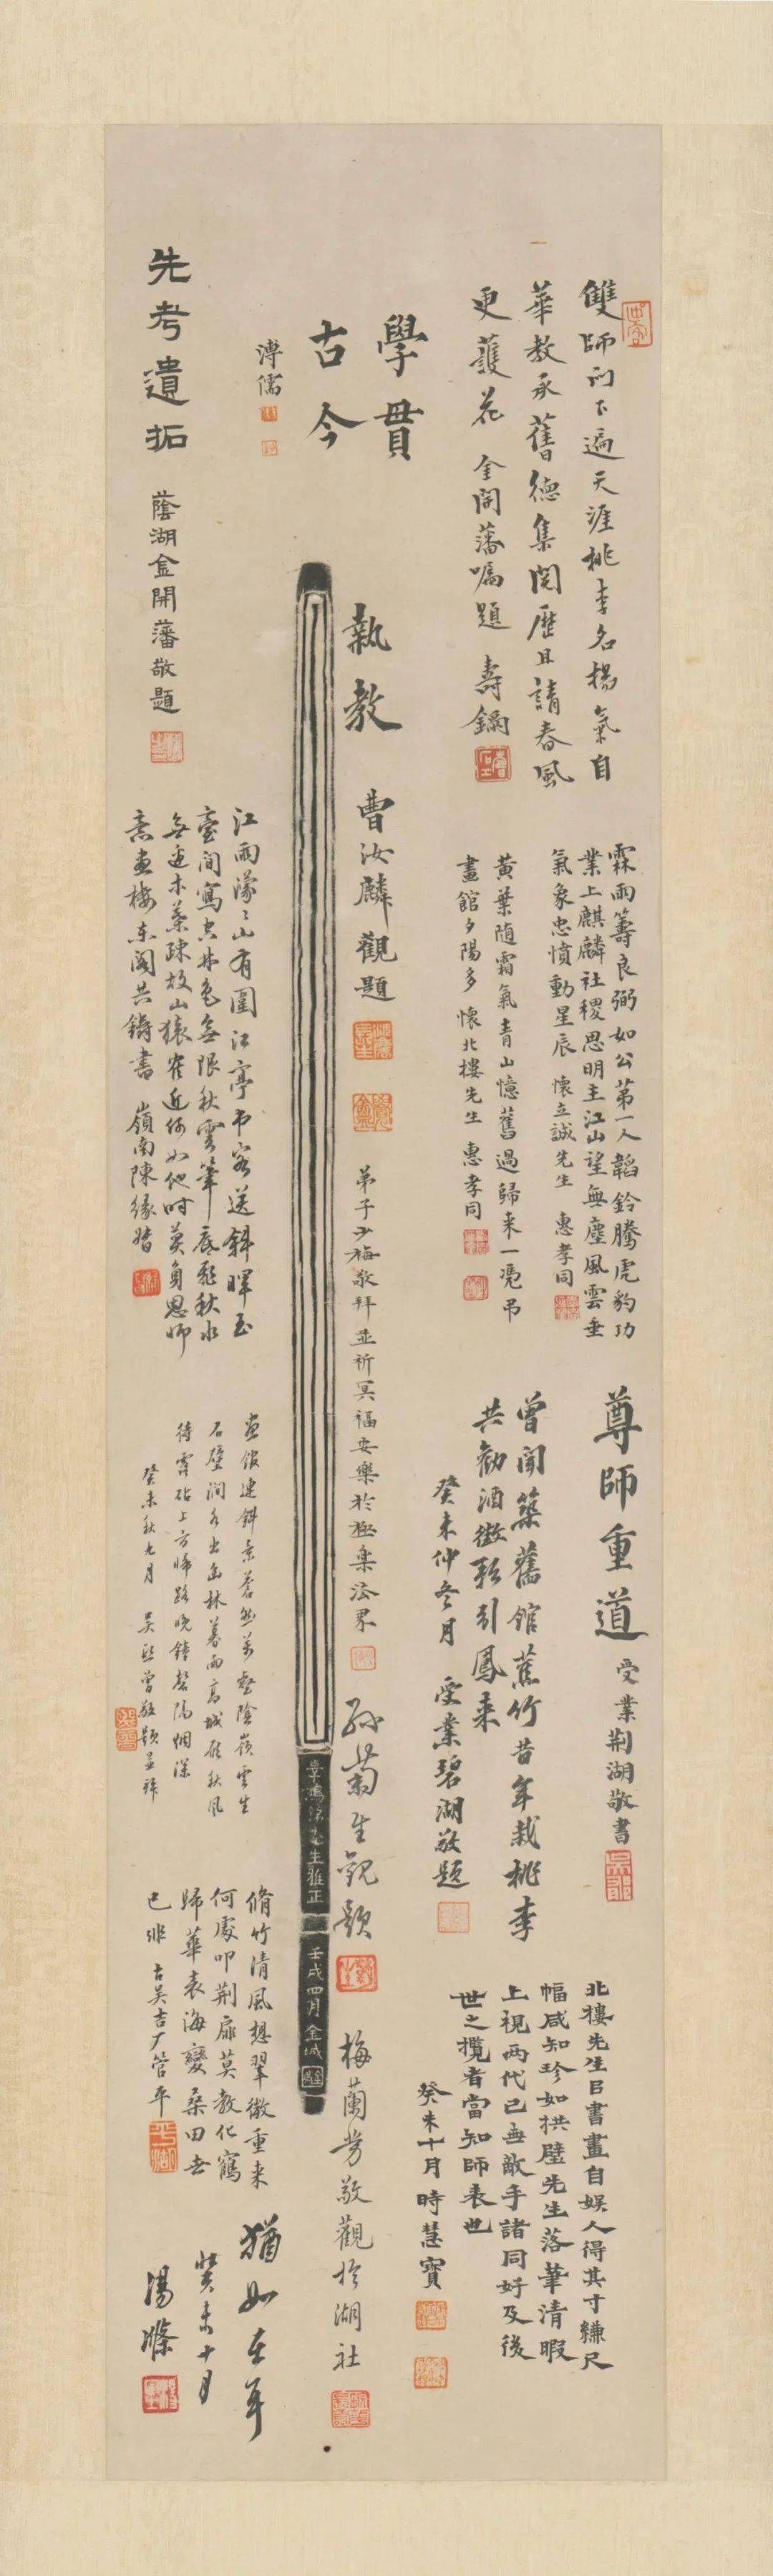 雙師門下遍天涯桃李名揚氣自
華教承舊德集閱歷且請春風
更護花 金開藩囑題 壽鑈
學貫
古今
溥儒
先考遺拓 蔭湖金開藩敬題
執教 曹汝麟觀題
霖雨籌良弼如公第一人韜鈐騰虎豹功
業上麒麟社稷思明主江山望無塵風雲垂
氣象忠憤動星辰 懷立誠先生 惠孝同
黃葉随霜氣青山憶舊過歸来一憑弔
畫館夕陽多 懷北樓先生 惠孝同
江雨濛〻山有圍江亭弔客送斜暉玉
臺間寫空林色無限秋雲筆底飛秋水
無邊木葉疎故山猿寉近何如他時莫負恩師
意畫樓東閣共鑄書 嶺南陳緣督
弟子少梅敬拜並祈冥福安樂於極樂法界
尊師重道 受業荆湖敬書
曾聞築舊館蕉竹昔年栽桃李
共勸酒徵歌引鳳来
癸未仲冬月 受業碧湖敬題
畫館建斜景蒼然萬壑陰嶺雲生
石壁澗水出幽林暮雨高城秋風
待霄砧上方歸路晚鐘磬隔烟深
癸未秋九月 吳熙曾敬題並拜
孫菊生觀題
章鴻 先生雅正
壬戌四月金城
北樓先生㠯書畫自娱人得其寸縑尺
幅咸知珍如拱璧先生落筆清暇
上視两代已無敵手諸同好及後
世之攬者當知師表也
癸未十月時慧寶
脩竹清風想翠微重来
何處叩荆扉莫教化鶴
歸華表海變桑田世
已非 古吴吉厂管平
梅蘭芳敬觀於湖社
猶如在耳
癸未十月
湯滌